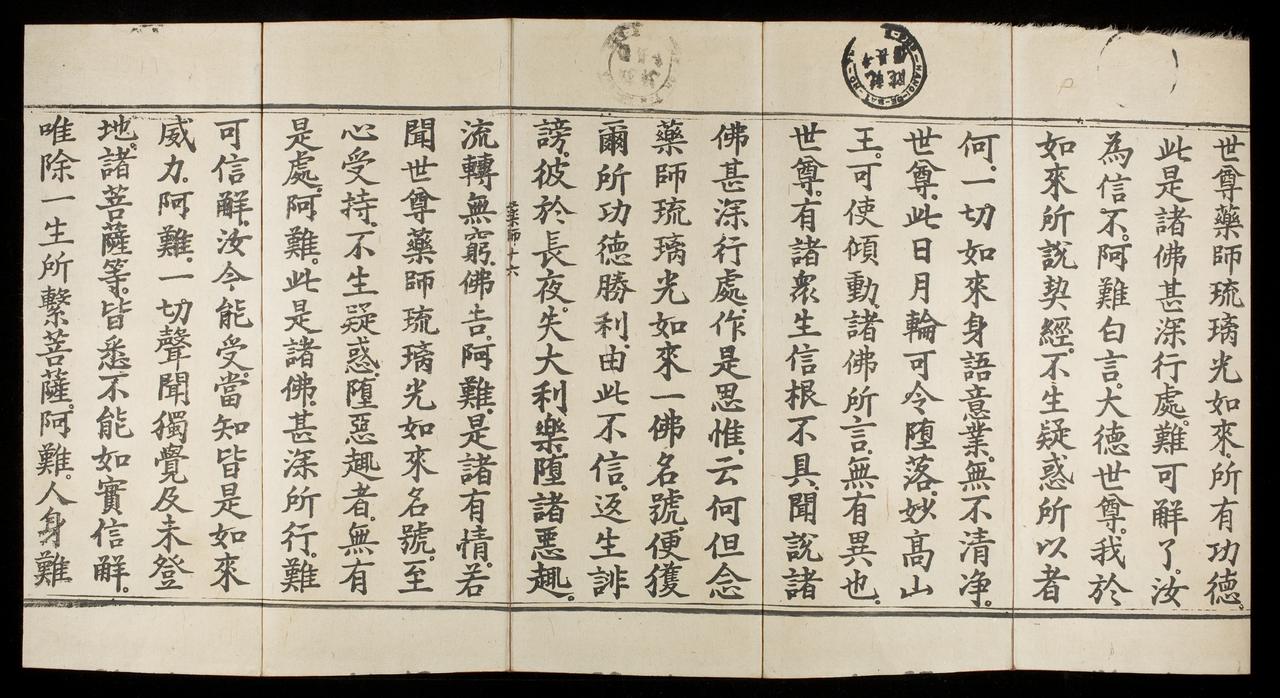 世尊藥師琉璃光如來。所有功德。
此是諸佛甚深行處。難可解了。汝
為信不。阿難白言。大德世尊。我於
如來所說契經。不生疑惑所以者
何。一切如來身語意業。無不清淨。
世尊。此日月輪可令墮落。妙高山
王。可使傾動。諸佛所言。無有異也。
世尊。有諸衆生信根不具。聞說諸
佛甚深行處。作是思惟。云何但念
藥師琉璃光如來一佛名號。便獲
爾所功德勝利。由此不信。返生誹
謗。彼於長夜。失大利樂。墮諸惡趣。
藥師十六
流轉無窮。佛告。阿難。是諸有情。若
聞世尊藥師琉璃光如來名號。至
心受持。不生疑惑。墮惡趣者。無有
是處。阿難。此是諸佛。甚深所行。難
可信解。汝今能受。當知皆是如來
威力。阿難。一切聲聞獨覺及未登
地。諸菩薩等。皆悉不能如實信解。
唯除一生所繫菩薩。阿難。人身難